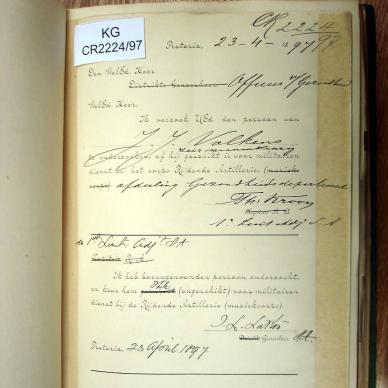 KG
CR2224/97
CR 2224
97
Pretoria, 23-4-1897
Den WelEd. Heer
Districts Geneesheer Officier v/ Gezondheid
WelEd. Heer,
Ik verzoek UEd. den persoon van
J. J. Volkers
te onderzoeken, of hij geschikt is voor militairen
dienst bij het corps Rijdende Artillerie. (muziek-
corps) afdeeling Gezondheidsdepartement
Th. Kroon
Kapitein R. A.
1e Luit Adj S A
de 1ste Luit. Adjt SA
Kapitein R. A.
Ik heb bovengenoemden persoon onderzocht,
en keur hem geschikt (ongeschikt) voor militairen
dienst bij de Rijdende Artillerie (muziekcorps).
Districts Geneesheer SA.
Pretoria, 23 April 1897